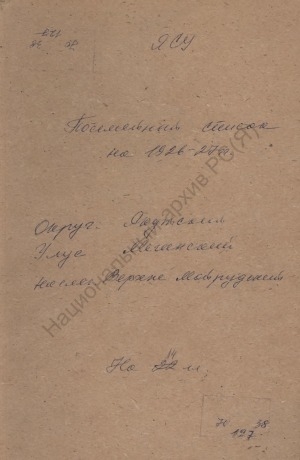 ЯСУ
Посемейный список
на 1926-27г
Округ. Якутский
Улус Мегинский
Наслег Верхне Моорудский
На 22 лл.
70 38
127
Национальный архив РС(Я)